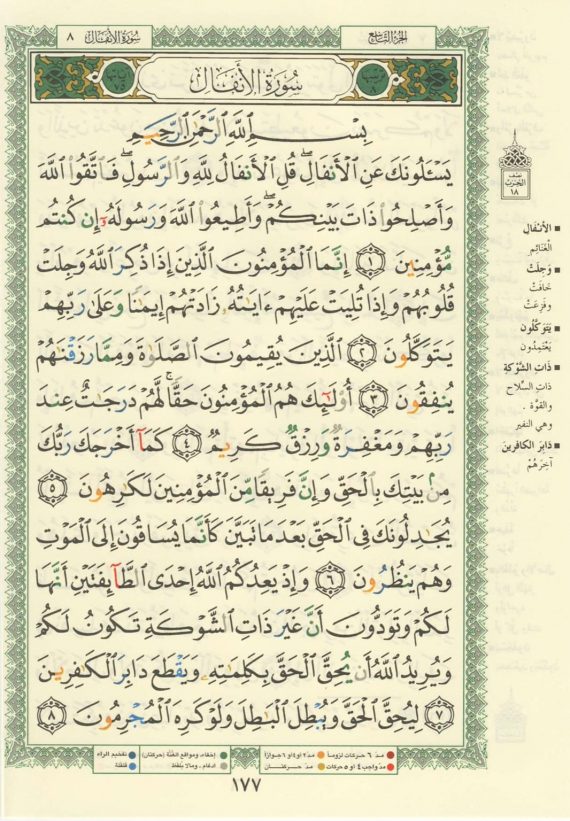 سُورَةُ الأَنفَال ٨
الجُزءُ التَّاسِع
سُورَةُ الأَنفَال
بِسْمِ ٱللَّهِ ٱلرَّحْمَٰنِ ٱلرَّحِيمِ
يَسْـَٔلُونَكَ عَنِ ٱلْأَنفَالِ ۖ قُلِ ٱلْأَنفَالُ لِلَّهِ وَٱلرَّسُولِ ۖ فَٱتَّقُوا۟ ٱللَّهَ
وَأَصْلِحُوا۟ ذَاتَ بَيْنِكُمْ ۖ وَأَطِيعُوا۟ ٱللَّهَ وَرَسُولَهُۥٓ إِن كُنتُم
مُّؤْمِنِينَ ١ إِنَّمَا ٱلْمُؤْمِنُونَ ٱلَّذِينَ إِذَا ذُكِرَ ٱللَّهُ وَجِلَتْ
قُلُوبُهُمْ وَإِذَا تُلِيَتْ عَلَيْهِمْ ءَايَٰتُهُۥ زَادَتْهُمْ إِيمَٰنًا وَعَلَىٰ رَبِّهِمْ
يَتَوَكَّلُونَ ٢ ٱلَّذِينَ يُقِيمُونَ ٱلصَّلَوٰةَ وَمِمَّا رَزَقْنَٰهُمْ
يُنفِقُونَ ٣ أُو۟لَٰٓئِكَ هُمُ ٱلْمُؤْمِنُونَ حَقًّا ۚ لَّهُمْ دَرَجَٰتٌ عِندَ
رَبِّهِمْ وَمَغْفِرَةٌ وَرِزْقٌ كَرِيمٌ ٤ كَمَآ أَخْرَجَكَ رَبُّكَ
مِنۢ بَيْتِكَ بِٱلْحَقِّ وَإِنَّ فَرِيقًا مِّنَ ٱلْمُؤْمِنِينَ لَكَٰرِهُونَ ٥
يُجَٰدِلُونَكَ فِى ٱلْحَقِّ بَعْدَ مَا تَبَيَّنَ كَأَنَّمَا يُسَاقُونَ إِلَى ٱلْمَوْتِ
وَهُمْ يَنظُرُونَ ٦ وَإِذْ يَعِدُكُمُ ٱللَّهُ إِحْدَى ٱلطَّآئِفَتَيْنِ أَنَّهَا
لَكُمْ وَتَوَدُّونَ أَنَّ غَيْرَ ذَاتِ ٱلشَّوْكَةِ تَكُونُ لَكُمْ
وَيُرِيدُ ٱللَّهُ أَن يُحِقَّ ٱلْحَقَّ بِكَلِمَٰتِهِۦ وَيَقْطَعَ دَابِرَ ٱلْكَٰفِرِينَ
٧ لِيُحِقَّ ٱلْحَقَّ وَيُبْطِلَ ٱلْبَٰطِلَ وَلَوْ كَرِهَ ٱلْمُجْرِمُونَ ٨
نصف
الحزب
١٨
الأنْفَال
الغَنَائِم
وَجِلَتْ
خَافَتْ
وفَزِعَتْ
يَتَوَكَّلُون
يَعْتَمِدُون
ذَاتِ الشَّوْكَةِ
ذاتِ السِّلاح
والقوّة
وهي النفير
دَابِرَ الكافرين
آخِرَهُمْ
مدّ ٦ حركات لزوماً
مدّ ٢ أو ٤ أو ٦ جوازاً
إخفاء، ومواقع الغُنَّة (حركتان)
تفخيم الراء
مدّ واجب ٤ أو ٥ حركات
مدّ حركتان
ادغام، ومالا يلفظ
قلقلة
١٧٧